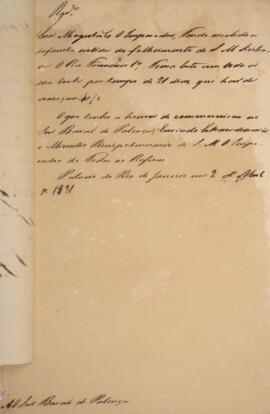 Sua Magestade O Imperador, Tendo recebido a
infausta noticia do fallecimento de S. M. Siciliana
O Rei Francisco 1º Toma luto com toda a
sua Corte por tempo de 21 dias, que hão de
começar
O que tenho a honra de communicar ao
Snr Barão de Palença, Enviado Extraordinario
e Ministro Plenipotenciario de S. M. O Impe-
rador de Todas as Russias
Palacio do Rio de Janeiro em 2 d'Abril
de 1831
Ao Snr Barão de Palença